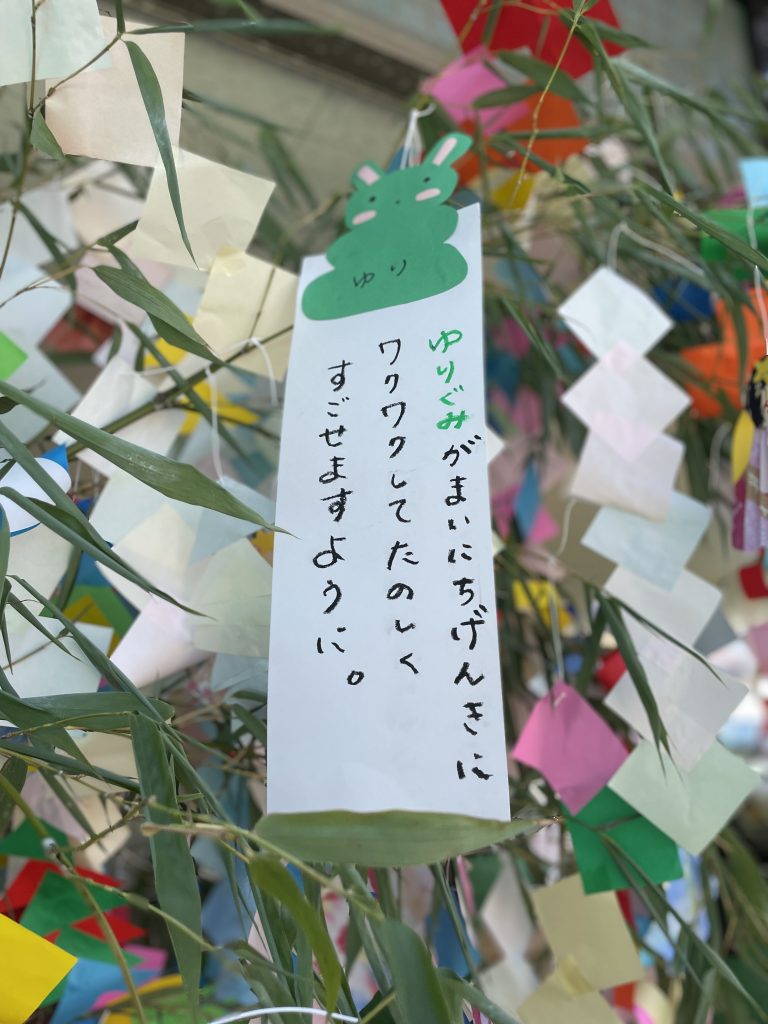 ゆり
ゆりぐみがまいにちげんきに
ワクワクしてたのしく
すごせますように。